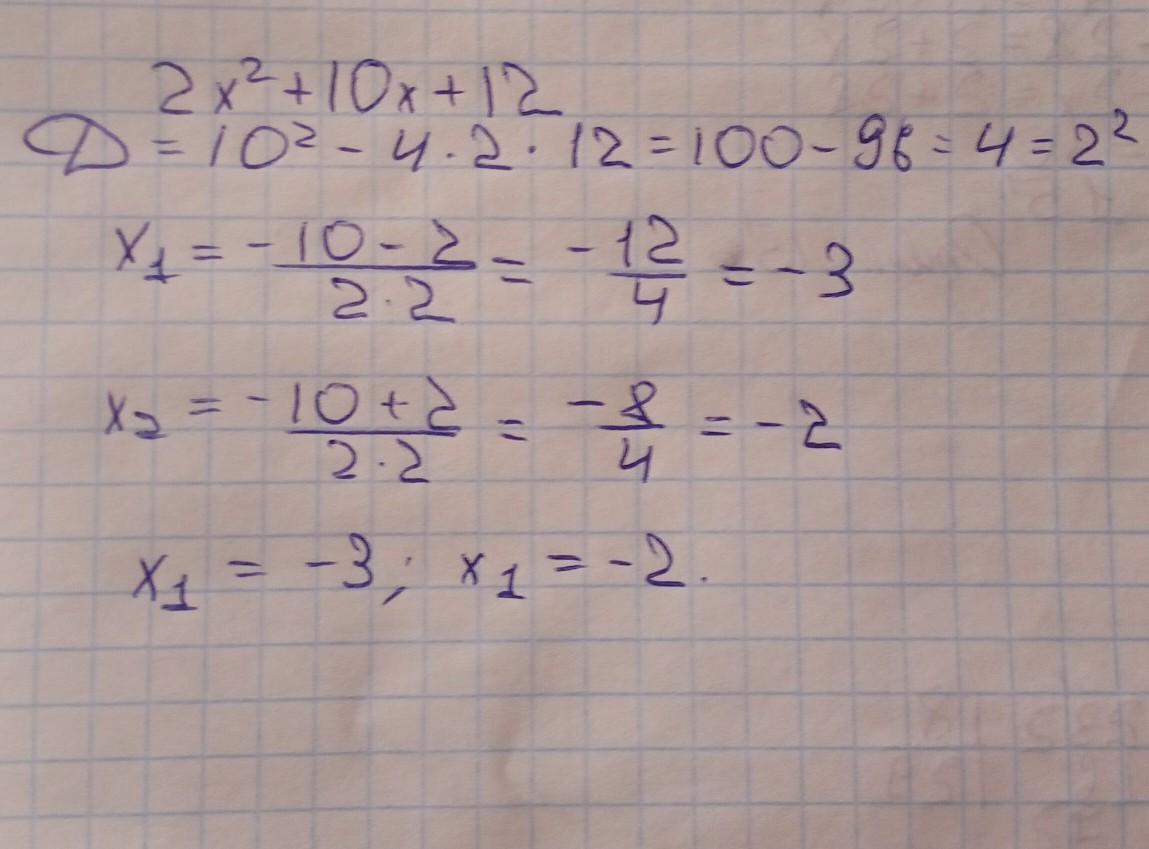 2x²+10x+12
D = 10² - 4 · 2 · 12 = 100 - 96 = 4 = 2²
x₁ = -10-2/2·2 = -12/4 = -3
x₂ = -10+2/2·2 = -8/4 = -2
x₁ = -3; x₁ = -2.